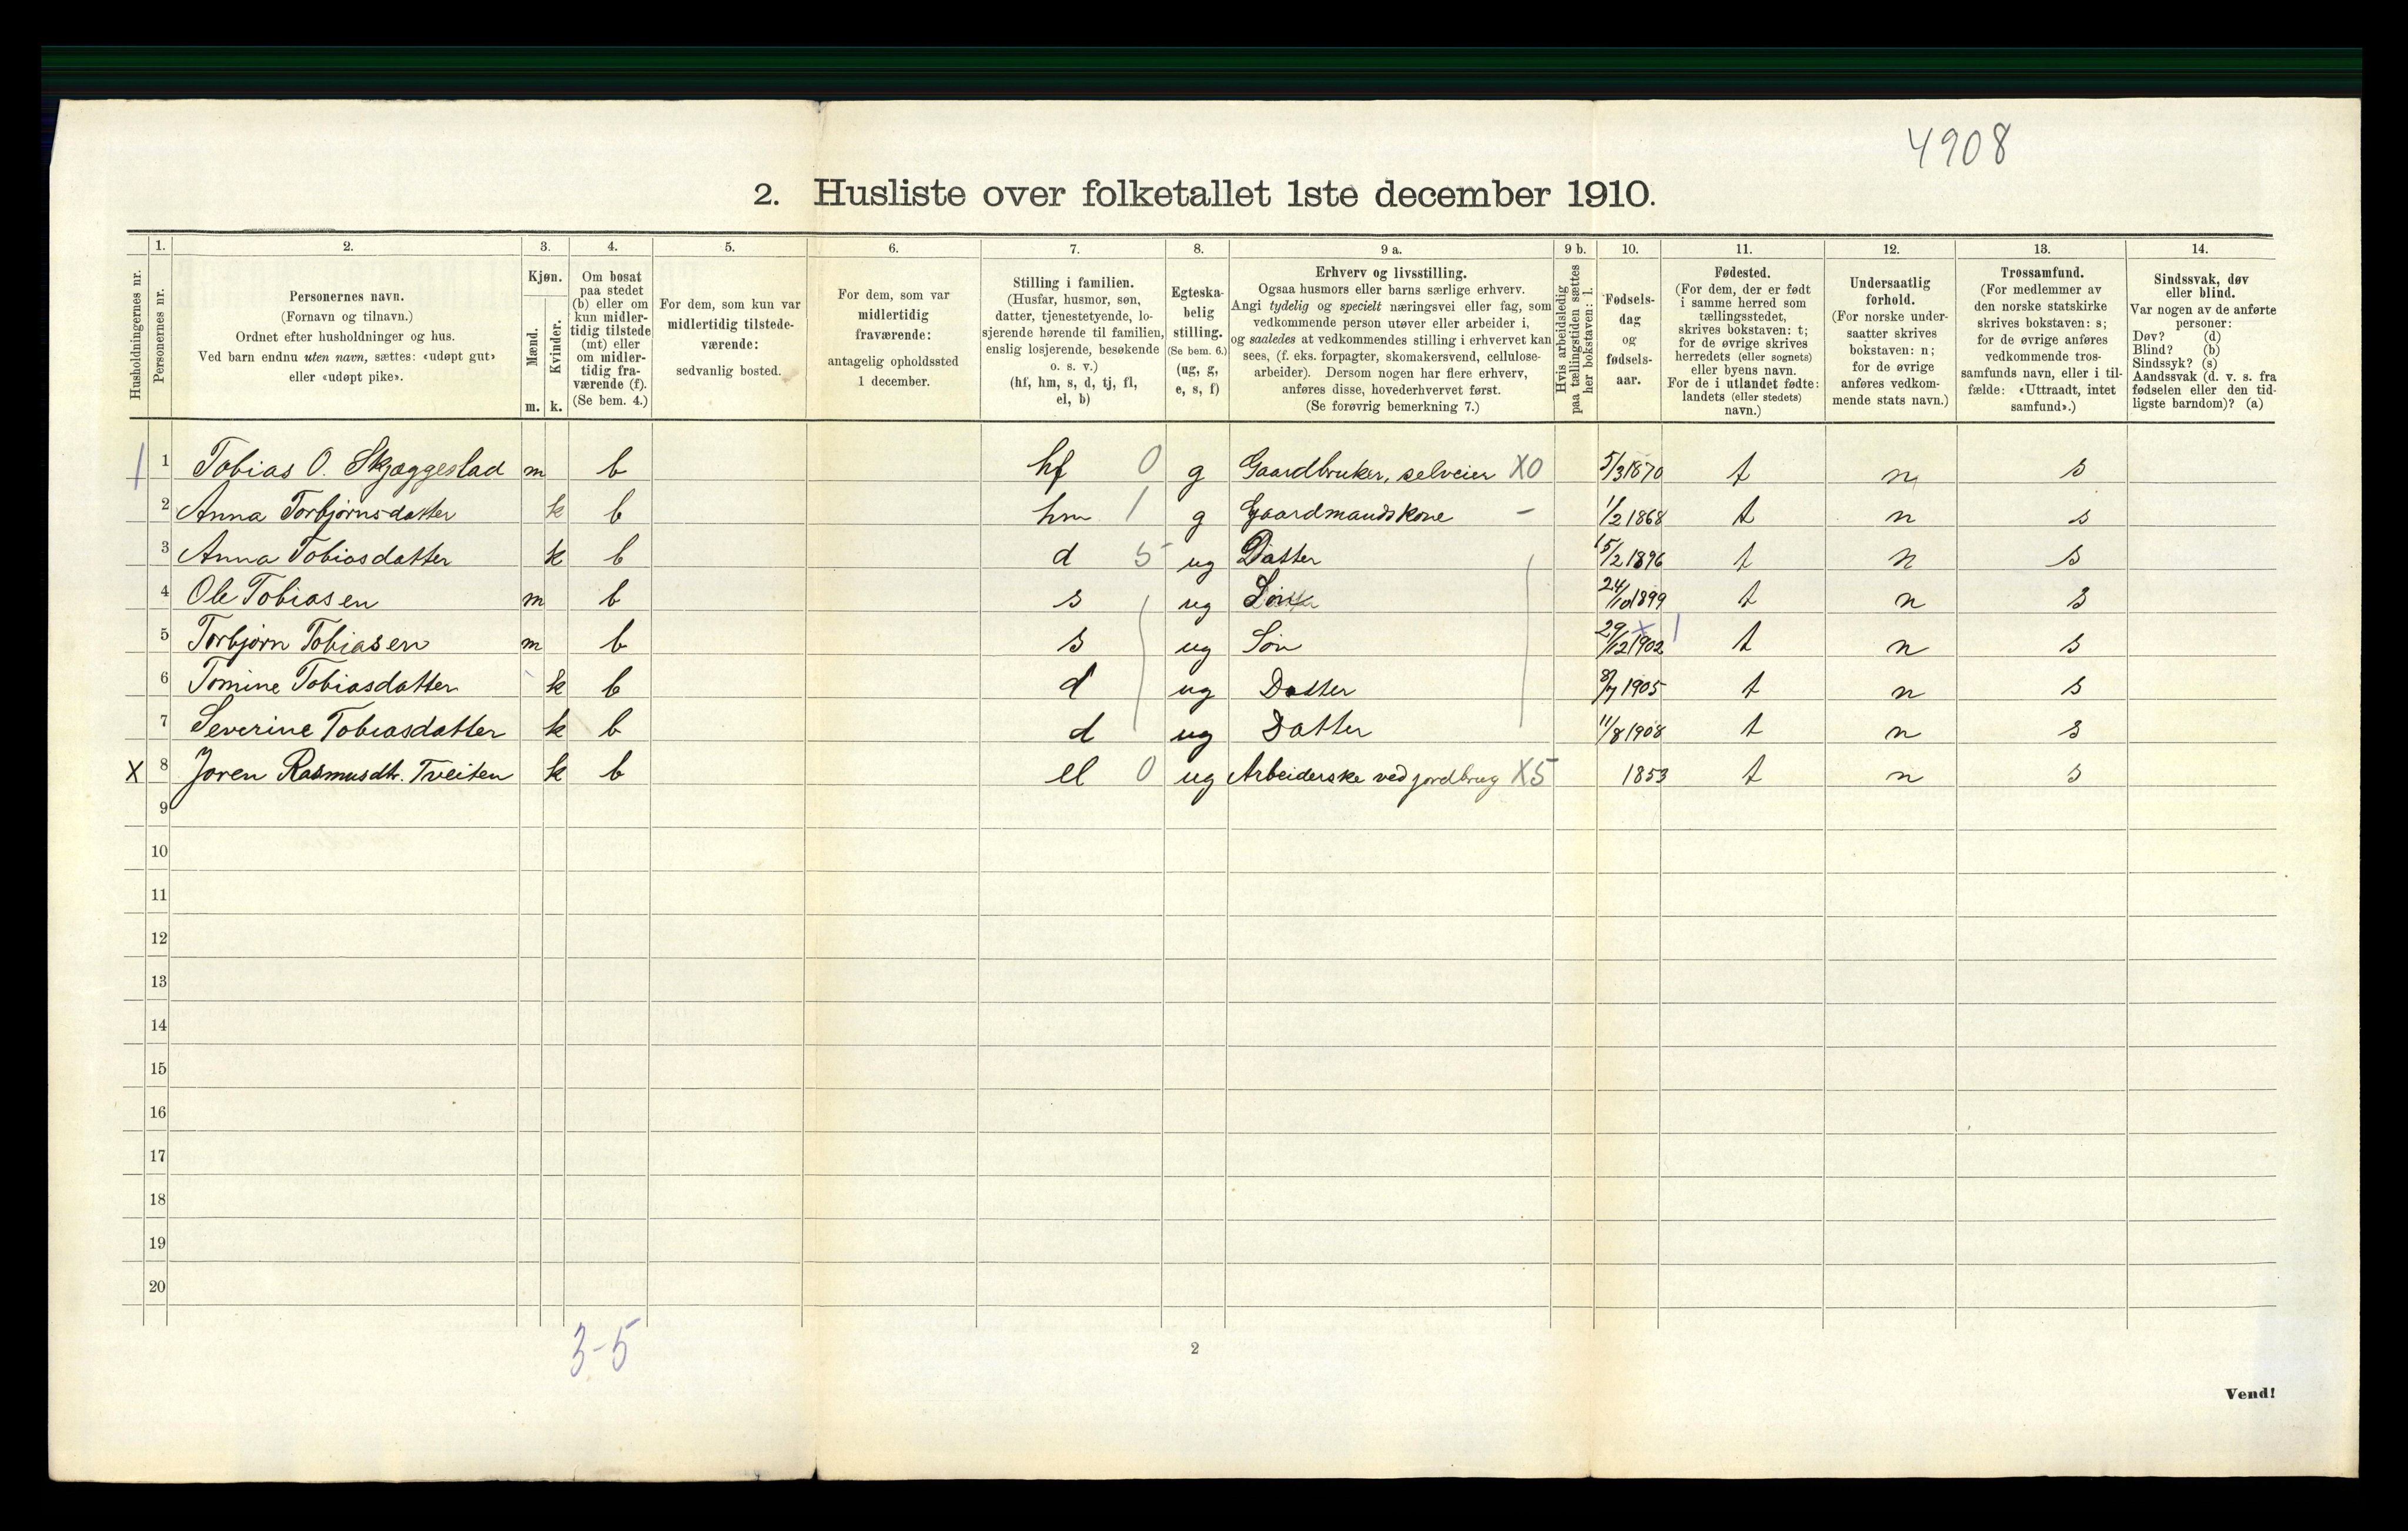 4908
2. Husliste over folketallet 1ste december 1910.
Husholdningernes nr.
1.
Personernes nr.
2.
Personernes navn.
(Fornavn og tilnavn.)
Ordnet efter husholdninger og hus.
Ved barn endnu uten navn, sættes: «udøpt gut»
eller «udøpt pike».
3.
Kjøn.
Mænd.
Kvinder.
m. k.
4.
Om bosat
paa stedet
(b) eller om
kun midler-
tidig tilstede
(mt) eller
om midler-
tidig fra-
værende (f).
(Se bem. 4.)
5.
For dem, som kun var
midlertidig tilstede-
værende:
sedvanlig bosted.
6.
For dem, som var
midlertidig
fraværende:
antagelig opholdssted
1 december.
7.
Stilling i familien.
(Husfar, husmor, søn,
datter, tjenestetyende, lo-
sjerende hørende til familien,
enslig losjerende, besøkende
o. s. v.)
(hf, hm, s, d, tj, fl,
el, b)
8.
Egteska-
belig
stilling.
(Se bem. 6.)
(ug, g,
e, s, f)
9 a.
Erhverv og livsstilling.
Ogsaa husmors eller barns særlige erhverv.
Angi tydelig og specielt næringsvei eller fag, som
vedkommende person utøver eller arbeider i,
og saaledes at vedkommendes stilling i erhvervet kan
sees, (f. eks. forpagter, skomakersvend, cellulose-
arbeider). Dersom nogen har flere erhverv,
anføres disse, hovederhvervet først.
(Se forøvrig bemerkning 7.)
9 b.
Hvis arbeidsledig
paa tællingstiden sættes
her bokstaven: l.
10.
Fødsels-
dag
og
fødsels-
aar.
11.
Fødested.
(For dem, der er født
i samme herred som
tællingsstedet,
skrives bokstaven: t;
for de øvrige skrives
herredets (eller sognets)
eller byens navn.
For de i utlandet fødte:
landets (eller stedets)
navn.)
12.
Undersaatlig
forhold.
(For norske under-
saatter skrives
bokstaven: n;
for de øvrige
anføres vedkom-
mende stats navn.)
13.
Trossamfund.
(For medlemmer av
den norske statskirke
skrives bokstaven: s;
for de øvrige anføres
vedkommende tros-
samfunds navn, eller i til-
fælde: «Uttraadt, intet
samfund».)
14.
Sindssvak, døv
eller blind.
Var nogen av de anførte
personer:
Døv? (d)
Blind? (b)
Sindssyk? (s)
Aandssvak (d. v. s. fra
fødselen eller den tid-
ligste barndom)? (a)
1 1 Tobias O. Skjæggestad m b hf 0 g Gaardbruker, selveier X0 5/3 1870 t n s
2 Anna Torbjørnsdatter k b hm 1 g Gaardmandskone – 1/2 1868 t n s
3 Anna Tobiasdatter k b d 5 ug Datter 15/2 1896 t n s
4 Ole Tobiasen m b s ug Søn 24/10 1899 t n s
5 Torbjørn Tobiasen m b s ug Søn 29/12 1902 t n s
6 Tomine Tobiasdatter k b d ug Datter 8/7 1905 t n s
7 Severine Tobiasdatter k b d ug Datter 11/8 1908 t n s
X 8 Joren Rasmusdtr. Tveiten k b el 0 ug Arbeiderske ved jordbrug X5 1853 t n s
9
10
11
12
13
14
15
16
17
18
19
20
3-5
2
Vend!